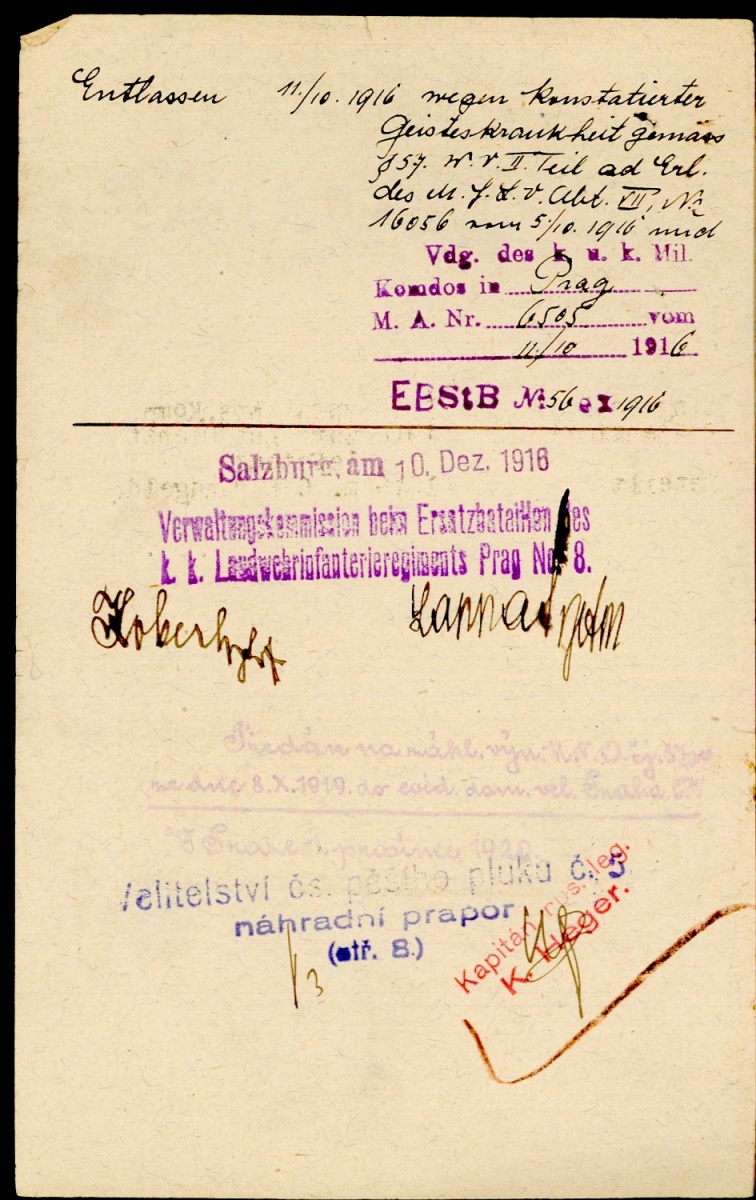 Entlassen 11./10. 1916 wegen konstatierter
Geisteskrankheit gemäss
§ 57. W. V. II. Teil ad Erl.
des M. f. L. V. Abt. VII, Nr
16056 vom 5./10. 1916 und
Vdg. des k. u. k. Mil.
Komdos in Prag
M. A. Nr. 6505 vom
11./10 1916
EBStB № 56 ex 1916
Salzburg, am 10. Dez. 1916
Verwaltungskommission beim Ersatzbataillon des
k. k. Landwehrinfanterieregiments Prag No. 8.
Předán na zákl. výn. M.N.O. čj.
ze dne 8.X.1919. do evid. dom. vel. Praha
V Praze prosince 1920
Velitelství čs. pěšího pluku č. 5
náhradní prapor
(stř. 8.)
Kapitán rus. leg.
K. Heger.